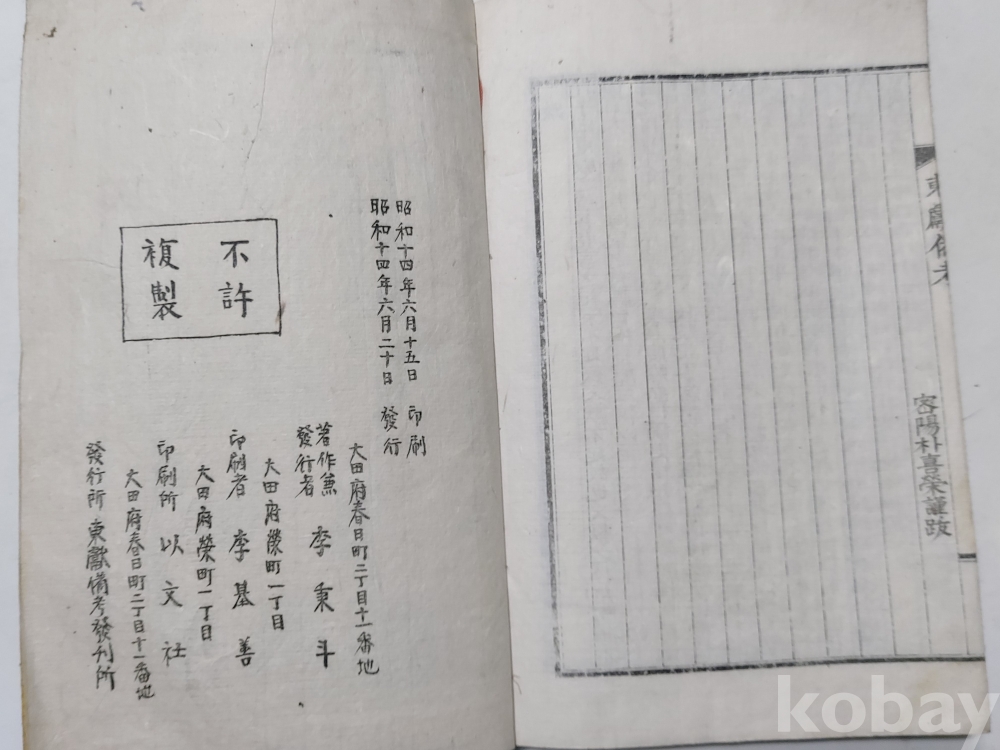 東獻備考
密陽朴喜榮謹跋
昭和十四年六月十五日 印刷
昭和十四年六月二十日 發行
大田府春日町二丁目十一番地
著作兼
發行者 李秉斗
大田府榮町一丁目
印刷者 李基善
大田府榮町一丁目
印刷所 以文社
大田府春日町二丁目十一番地
發行所 東獻備考發刊所
不許
複製
kobay